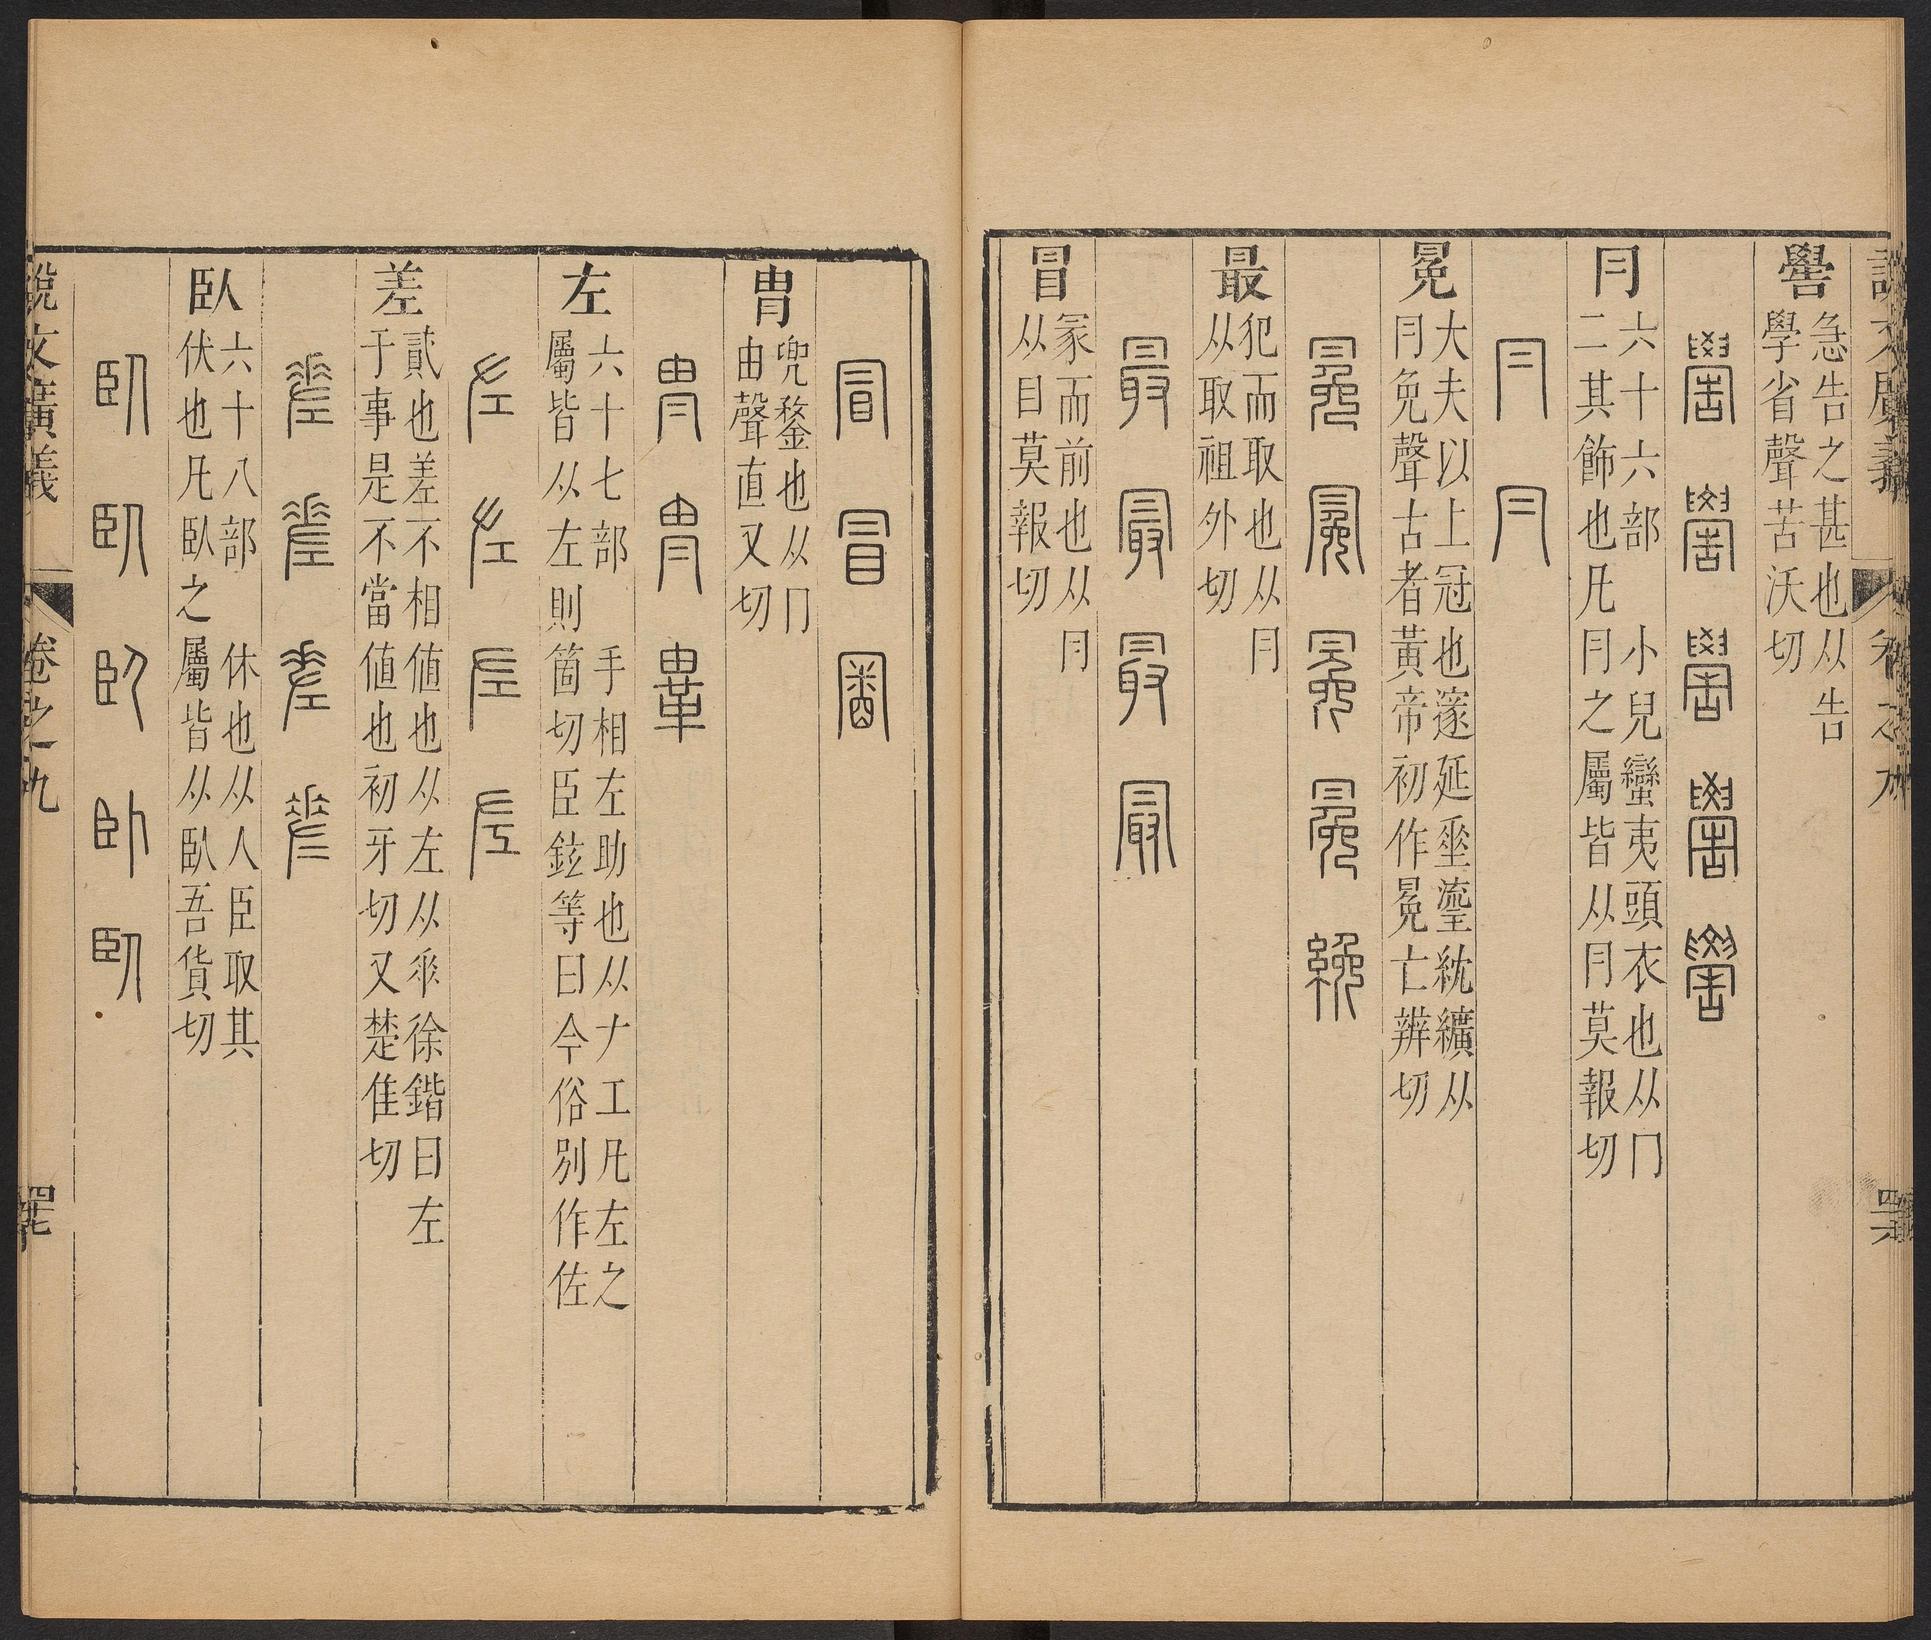 說文廣義 卷之九 四六
嚳
急告之甚也从告
學省聲苦沃切
嚳 嚳 嚳 嚳 嚳
冃
六十六部 小兒蠻夷頭衣也从冂
二其飾也凡冃之屬皆从冃莫報切
冃 冃
冕
大夫以上冠也邃延垂瑬紞纊从
冃免聲古者黃帝初作冕亡辨切
冕 冕 冕 冕 絻
最
犯而取也从冃
从取祖外切
最 最 最 最
冒
冡而前也从冃
从目莫報切
冒 冒
冑
兜鍪也从冂
由聲直又切
冑 冑
左
六十七部 手相左助也从𠂇工凡左之
屬皆从左則箇切臣鉉等曰今俗別作佐
左 左 左 左
差
貳也差不相值也从左从𠂹徐鍇曰左
于事是不當值也初牙切又楚隹切
差 差 差 差
臥
六十八部 休也从人臣取其
伏也凡臥之屬皆从臥吾貨切
臥 臥 臥 臥 臥
說文廣義 卷之九 四七